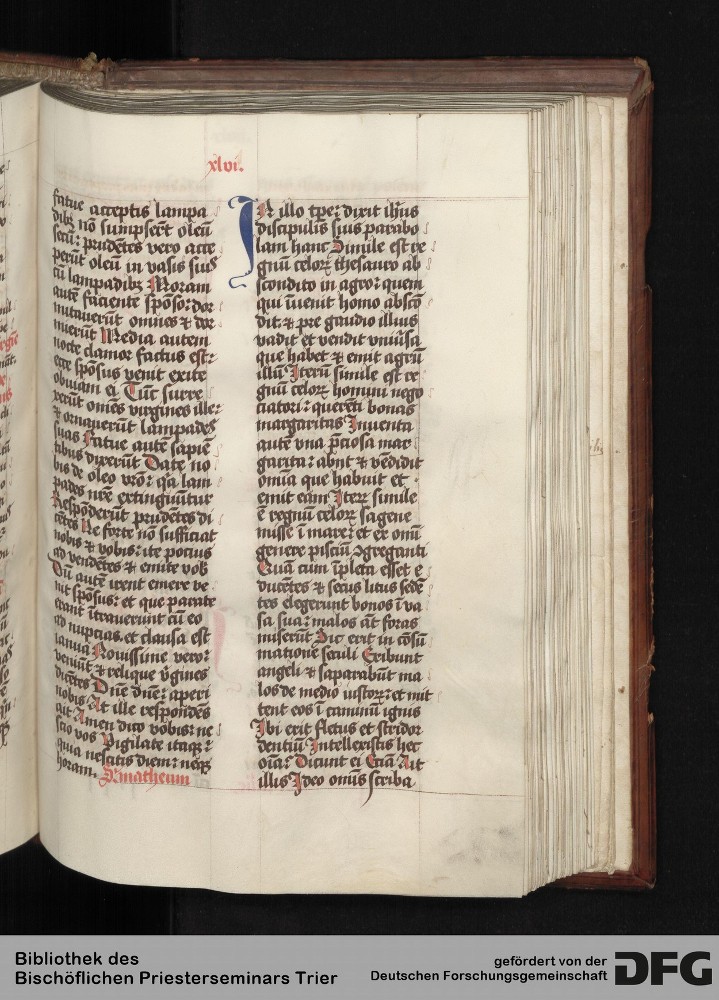 xlvi.
fatue acceptis lampa
dibꝫ nō sumpserūt oleū
secū: prudētes vero acce
perūt oleū in vasis suis
cū lampadibꝫ Moram
autē faciente spōso: dor
mitauerūt omnes ⁊ dor
mierūt Media autem
nocte clamor factus est:
ecce spōsus venit exite
obuiam ei Tūc surre
xerūt omēs virgines ille:
⁊ ornauerūt lampades
suas Fatue autē sapiē
tibus dixerūt Date no
bis de oleo vr̄o: q̇a lam
pades nr̄e extinguūtur
Respōderūt prudētes di
cētes Ne forte nō sufficiat
nobis ⁊ vobis: ite pocius
ad vendētes ⁊ emite vob̄
Dū autē irent emere ve
nit spōsus: et que parate
erant ītrauerunt cū eo
ad nupcias. et clausa est
ianua Nouissime vero:
veniūt ⁊ relique v̄gines
dicētes Dn̄e dn̄e: aperi
nobis At ille respondēs
ait Amen dico vobis: ne
scio vos Vigilate itaqꝫ:
quia nescitis diem: neqꝫ
horam. S. matheum
IN illo tp̄e: dixit ih̄us
discipulis suis parabo
lam hanc Simile est re
gnū celoꝝ thesauro ab
scondito in agro: quem
qui īuenit homo abscō
dit: ⁊ pre gaudio illius
vadit et vendit vniūsa
que habet ⁊ emit agrū
illū Iterū simile est re
gnū celoꝝ homini nego
ciatori: querēti bonas
margaritas Inuenta
autē vna p̄ciosa mar
garita: abijt ⁊ vēdidit
omīa que habuit et
emit eam Iterꝝ simile
ē regnū celoꝝ sagene
misse ī mare: et ex omī
genere pisciū ꝯgreganti
Quā cum īpleta esset e
ducētes ⁊ secus litus sedē
tes elegerunt bonos ī va
sa sua: malos āt foras
miserūt Sic erit in cōsū
matione seculi Exibunt
angeli ⁊ separabūt ma
los de medio iustoꝝ: et mit
tent eos ī caminū ignis
Ibi erit fletus et stridor
dentiū Intellexistis hec
oīa: Dicunt ei Eciā Ait
illis Ideo omīs scriba
Bibliothek des
Bischöflichen Priesterseminars Trier
gefördert von der
Deutschen Forschungsgemeinschaft
DFG